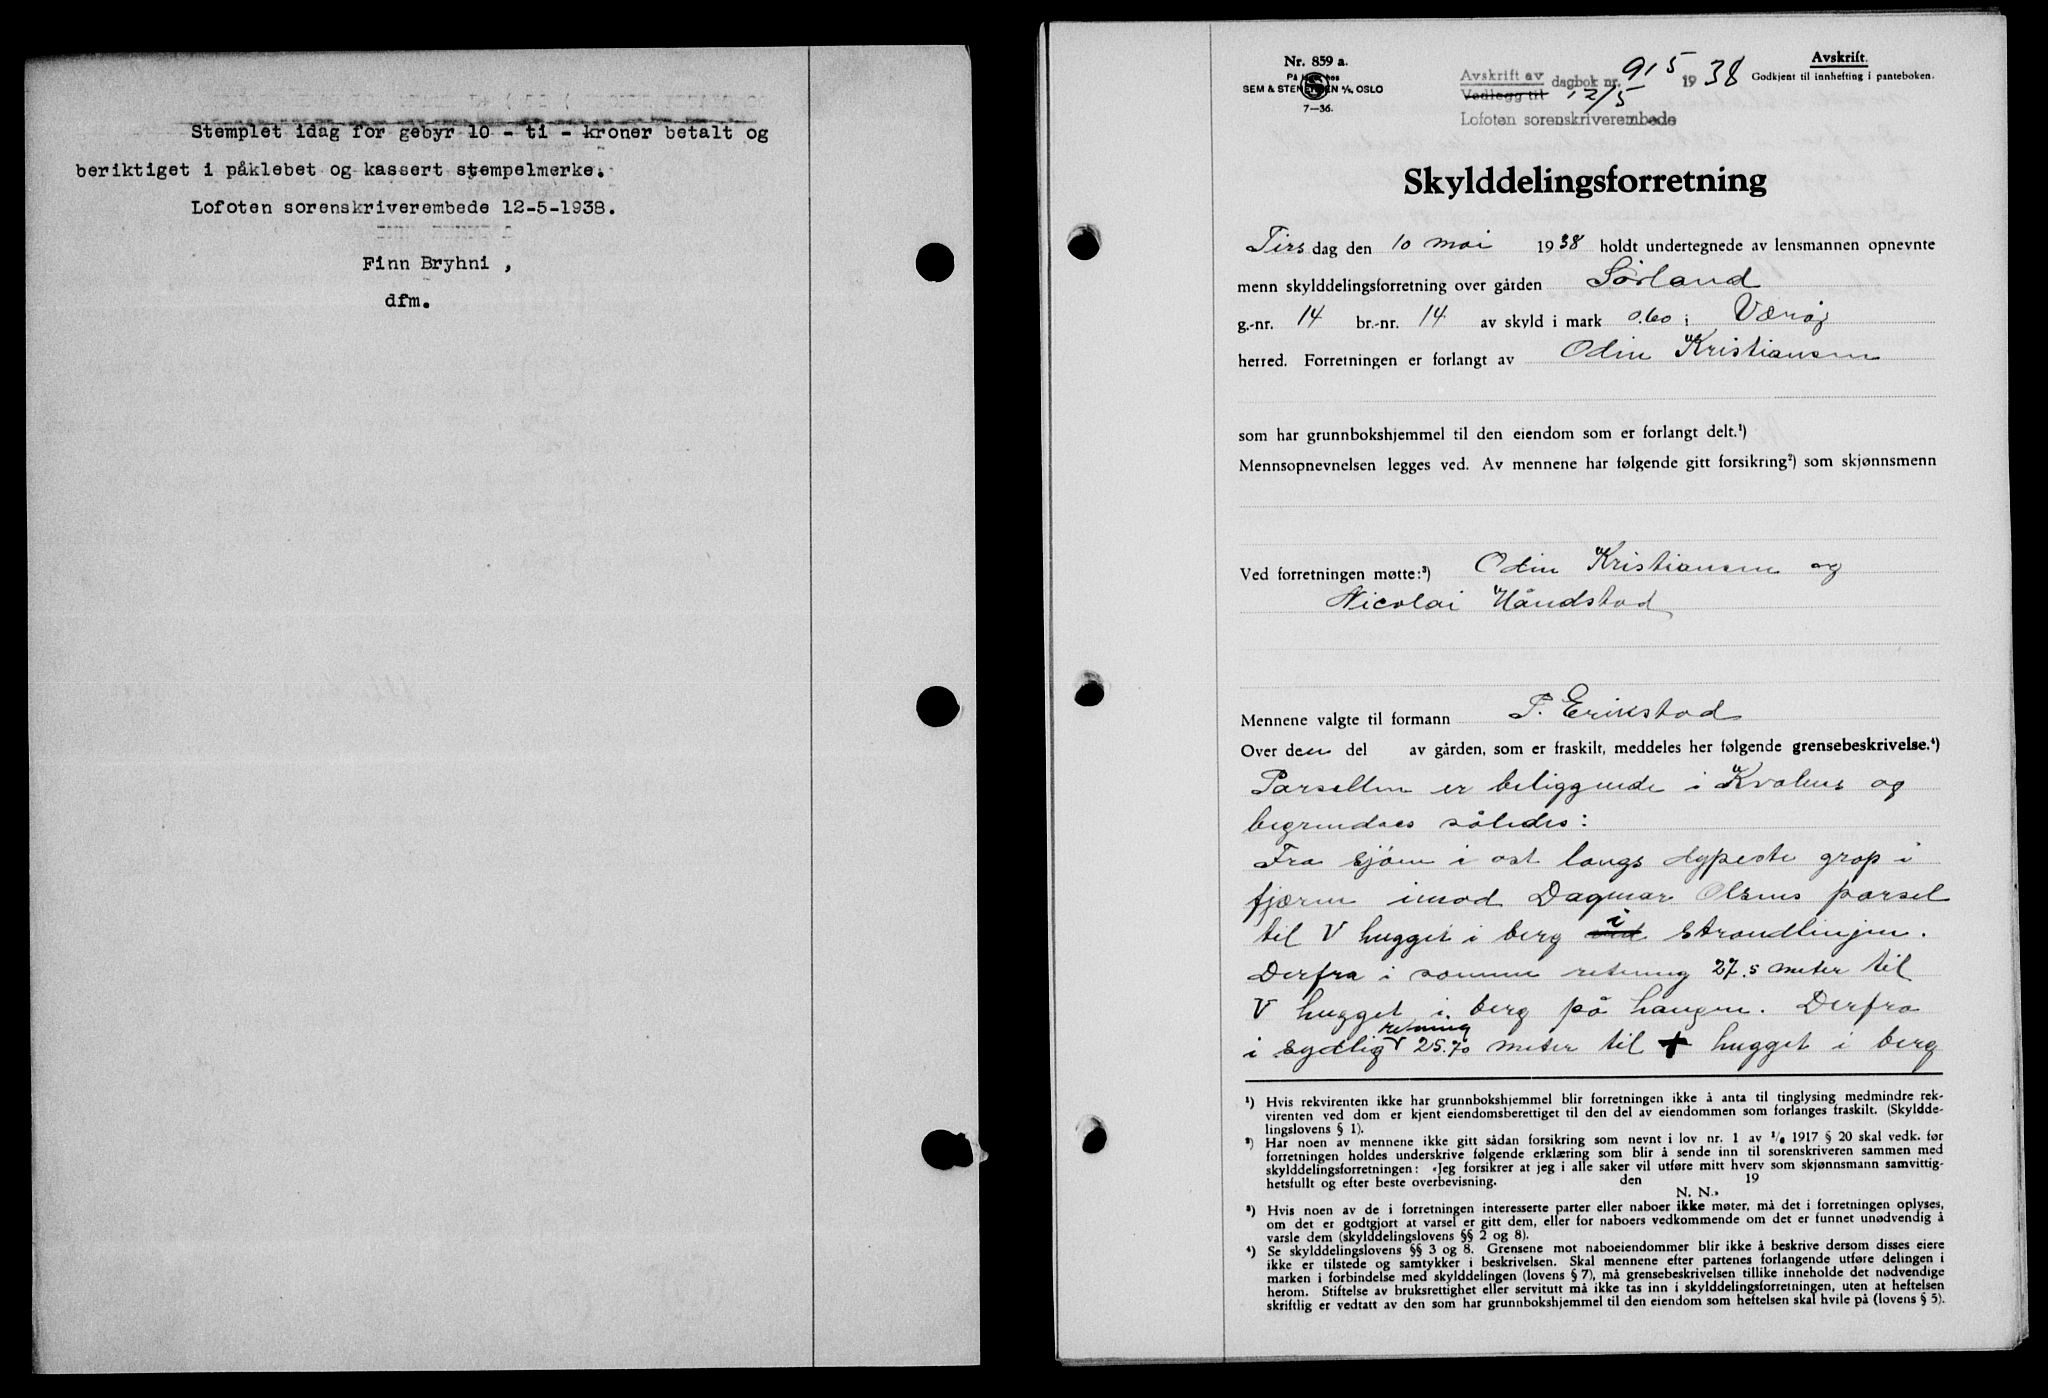 Stemplet idag for gebyr 10 - ti - kroner betalt og
beriktiget i påklebet og kassert stempelmerke.
Lofoten sorenskriverembede 12-5-1938.
Finn Bryhni ,
dfm.
Nr. 859 a.
SEM & STENERSEN A/S, OSLO
7—36.
Avskrift av
Vedlegg til
dagbok nr. 915 1938
12/5
Lofoten sorenskriverembede
Avskrift.
Godkjent til innhefting i panteboken.
Skylddelingsforretning
Tirsdag den 10 mai 1938 holdt undertegnede av lensmannen opnevnte
menn skylddelingsforretning over gården Sørland
g.-nr. 14 br.-nr. 14 av skyld i mark 0.60 i Værøy
herred. Forretningen er forlangt av Odin Kristiansen
som har grunnbokshjemmel til den eiendom som er forlangt delt.¹)
Mennsopnevnelsen legges ved. Av mennene har følgende gitt forsikring²) som skjønnsmenn
Ved forretningen møtte:³) Odin Kristiansen og
Nicolai Håndstad
Mennene valgte til formann P. Erikstad
Over den del av gården, som er fraskilt, meddeles her følgende grensebeskrivelse.⁴)
Parsellen er beliggende i Kvalnes og
begrendses således:
Fra sjøen i ost langs dypeste grop i
fjæren imod Dagmar Olsens parsel
til V hugget i berg ved i strandlinjen.
Derfra i samme retning 27.5 meter til
V hugget i berg på haugen. Derfra
i sydlig retning 25.70 meter til + hugget i berg
¹) Hvis rekvirenten ikke har grunnbokshjemmel blir forretningen ikke å anta til tinglysing medmindre rek-
virenten ved dom er kjent eiendomsberettiget til den del av eiendommen som forlanges fraskilt. (Skyldde-
lingslovens § 1).
²) Har noen av mennene ikke gitt sådan forsikring som nevnt i lov nr. 1 av 1/6 1917 § 20 skal vedk. før
forretningen holdes underskrive følgende erklæring som blir å sende inn til sorenskriveren sammen med
skylddelingsforretningen: «Jeg forsikrer at jeg i alle saker vil utføre mitt hverv som skjønnsmann samvittig-
hetsfullt og efter beste overbevisning. den 19
N. N.»
³) Hvis noen av de i forretningen interesserte parter eller naboer ikke møter, må det i forretningen oplyses,
om det er godtgjort at varsel er gitt dem, eller for naboers vedkommende om det er funnet unødvendig å
varsle dem (skylddelingslovens §§ 2 og 8).
⁴) Se skylddelingslovens §§ 3 og 8. Grensene mot naboeiendommer blir ikke å beskrive dersom disses eiere
ikke er tilstede og samtykker i beskrivelsen. Skal mennene efter partenes forlangende utføre delingen i
marken i forbindelse med skylddelingen (lovens § 7), må grensebeskrivelsen tillike inneholde det nødvendige
herom. Stiftelse av bruksrettighet eller servitutt må ikke tas inn i skylddelingsforretningen, uten at heftelsen
skriftlig er vedtatt av den som har grunnbokshjemmel til den eiendom som heftelsen skal hvile på (lovens § 5).